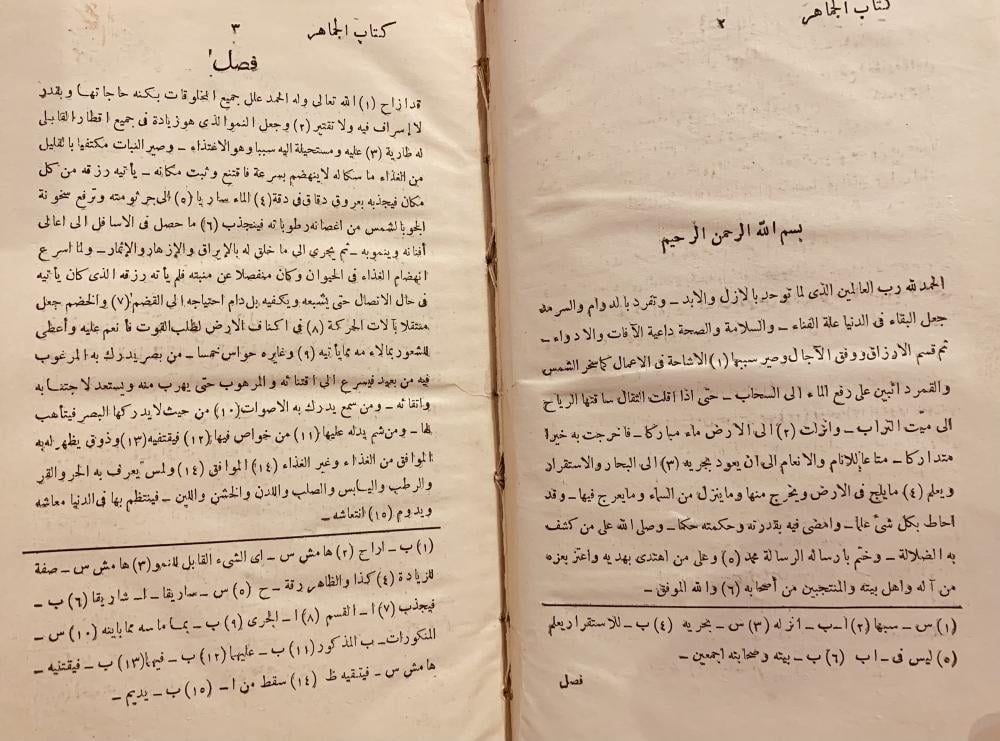 كتاب الجماهر
٢
بسم الله الرحمن الرحيم
الحمد لله رب العالمين الذى لما توحد بالازل والابد ـ وتفرد بالدوام والسرمد
جعل البقاء فى الدنيا علة الفناء ـ والسلامة والصحة داعية الآفات والادواء ـ
ثم قسم الارزاق ووفق الآجال وصير سببها (١) الاشاحة فى الاعمال كما سخر الشمس
والقمر دائبين على رفع الماء الى السحاب ـ حتى اذا اقلت الثقال ساقتها الرياح
الى ميت التراب ـ وانزلت (٢) الى الارض ماء مباركا ـ فاخرجت به خيرا
متداركا ـ متاعا للانام والانعام الى ان يعود بجريه (٣) الى البحار والاستقرار
ويعلم (٤) مايلج فى الارض ويخرج منها وما ينزل من السماء ومايعرج فيها ـ وقد
احاط بكل شئ علما ـ وامضى فيه بقدرته وحكمته حكما ـ وصلى الله على من كشف
به الضلالة ـ وختم بارساله الرسالة محمد (٥) وعلى من اهتدى بهديه واعتز بعزه
من آله واهل بيته والمنتجبين من أصحابه (٦) والله الموفق ـ
(١) س ـ سبها (٢) ا ـ ب ـ انزله (٣) س ـ بحريه (٤) ب ـ للاستقرار يعلم
(٥) ليس فى ـ ا ب (٦) ب ـ بيته وصحابته اجمعين ـ
فصل
كتاب الجماهر
٣
فصل
قد ازاح (١) الله تعالى وله الحمد علل جميع المخلوقات بكنه حاجاتها وبقدر
لا إسراف فيه ولا تقتير (٢) وجعل النمو الذى هو زيادة فى جميع اقطار القابل
له طارية (٣) عليه ومستحيلة اليه سببا وهو الاغتذاء ـ وصير النبات مكتفيا بالقليل
من الغذاء ما سكاله لاينهضم بسرعة فاقتنع وثبت مكانه ـ يأتيه رزقه من كل
مكان فيجذبه بعروق دقاق فى دقة (٤) الماء ساريا (٥) الى جرثومته وترفع سخونة
الجو بالشمس من اغصانه رطوباته فينجذب (٦) ما حصل فى الاسافل الى اعالى
أفنانه وينمو به ـ ثم يجرى الى ما خلق له بالإيراق والإزهار والإثمار ـ ولما اسرع
انهضام الغذاء فى الحيوان وكان منفصلا عن منبته فلم يأته رزقه الذى كان يأتيه
فى حال الاتصال حتى يشبعه ويكفيه بل دام احتياجه الى القضم (٧) والخضم جعل
متنقلا بآلات الحركة (٨) فى اكناف الارض لطلب القوت فأنعم عليه وأعطى
للشعور بملاءمه مما يأتيه (٩) وغايره حواس خمسا ـ من بصر يدرك به المرغوب
فيه من بعيد فيسرع الى اقتنائه والمرهوب حتى يهرب منه ويستعد لاجتنابه
واتقائه ـ ومن سمع يدرك به الاصوات (١٠) من حيث لا يدركها البصر فيتأهب
لها ـ ومن شم يدله عليها (١١) من خواص فيها (١٢) فيقتفيه (١٣) وذوق يظهر له به
الموافق من الغذاء وغير الغذاء (١٤) الموافق (١٤) ولمس يعرف به الحر والقر
والرطب واليابس والصلب واللدن والخشن واللين ـ فينتظم بها فى الدنيا معاشه
ويدوم (١٥) انتعاشه ـ
(١) ب ـ اراح (٢) هامش س ـ اى الشىء القابل للنمو (٣) هامش س ـ صفة
للزيادة (٤) كذا والظاهر رقة ـ ح (٥) س ـ ساريقا ـ ا ـ شاريقا (٦) ب ـ
فيجذب (٧) ا ـ القسم (٨) ا ـ الجرى (٩) ب ـ بما ماسه مما باينه (١٠) س ـ
المنكورات ـ ب المذكور (١١) ب ـ عليهما (١٢) ب ـ فيهما (١٣) ب ـ فيقتنيه ـ
هامش س ـ فينقيه ظ (١٤) سقط من ا ـ (١٥) ب ـ يديم ـ